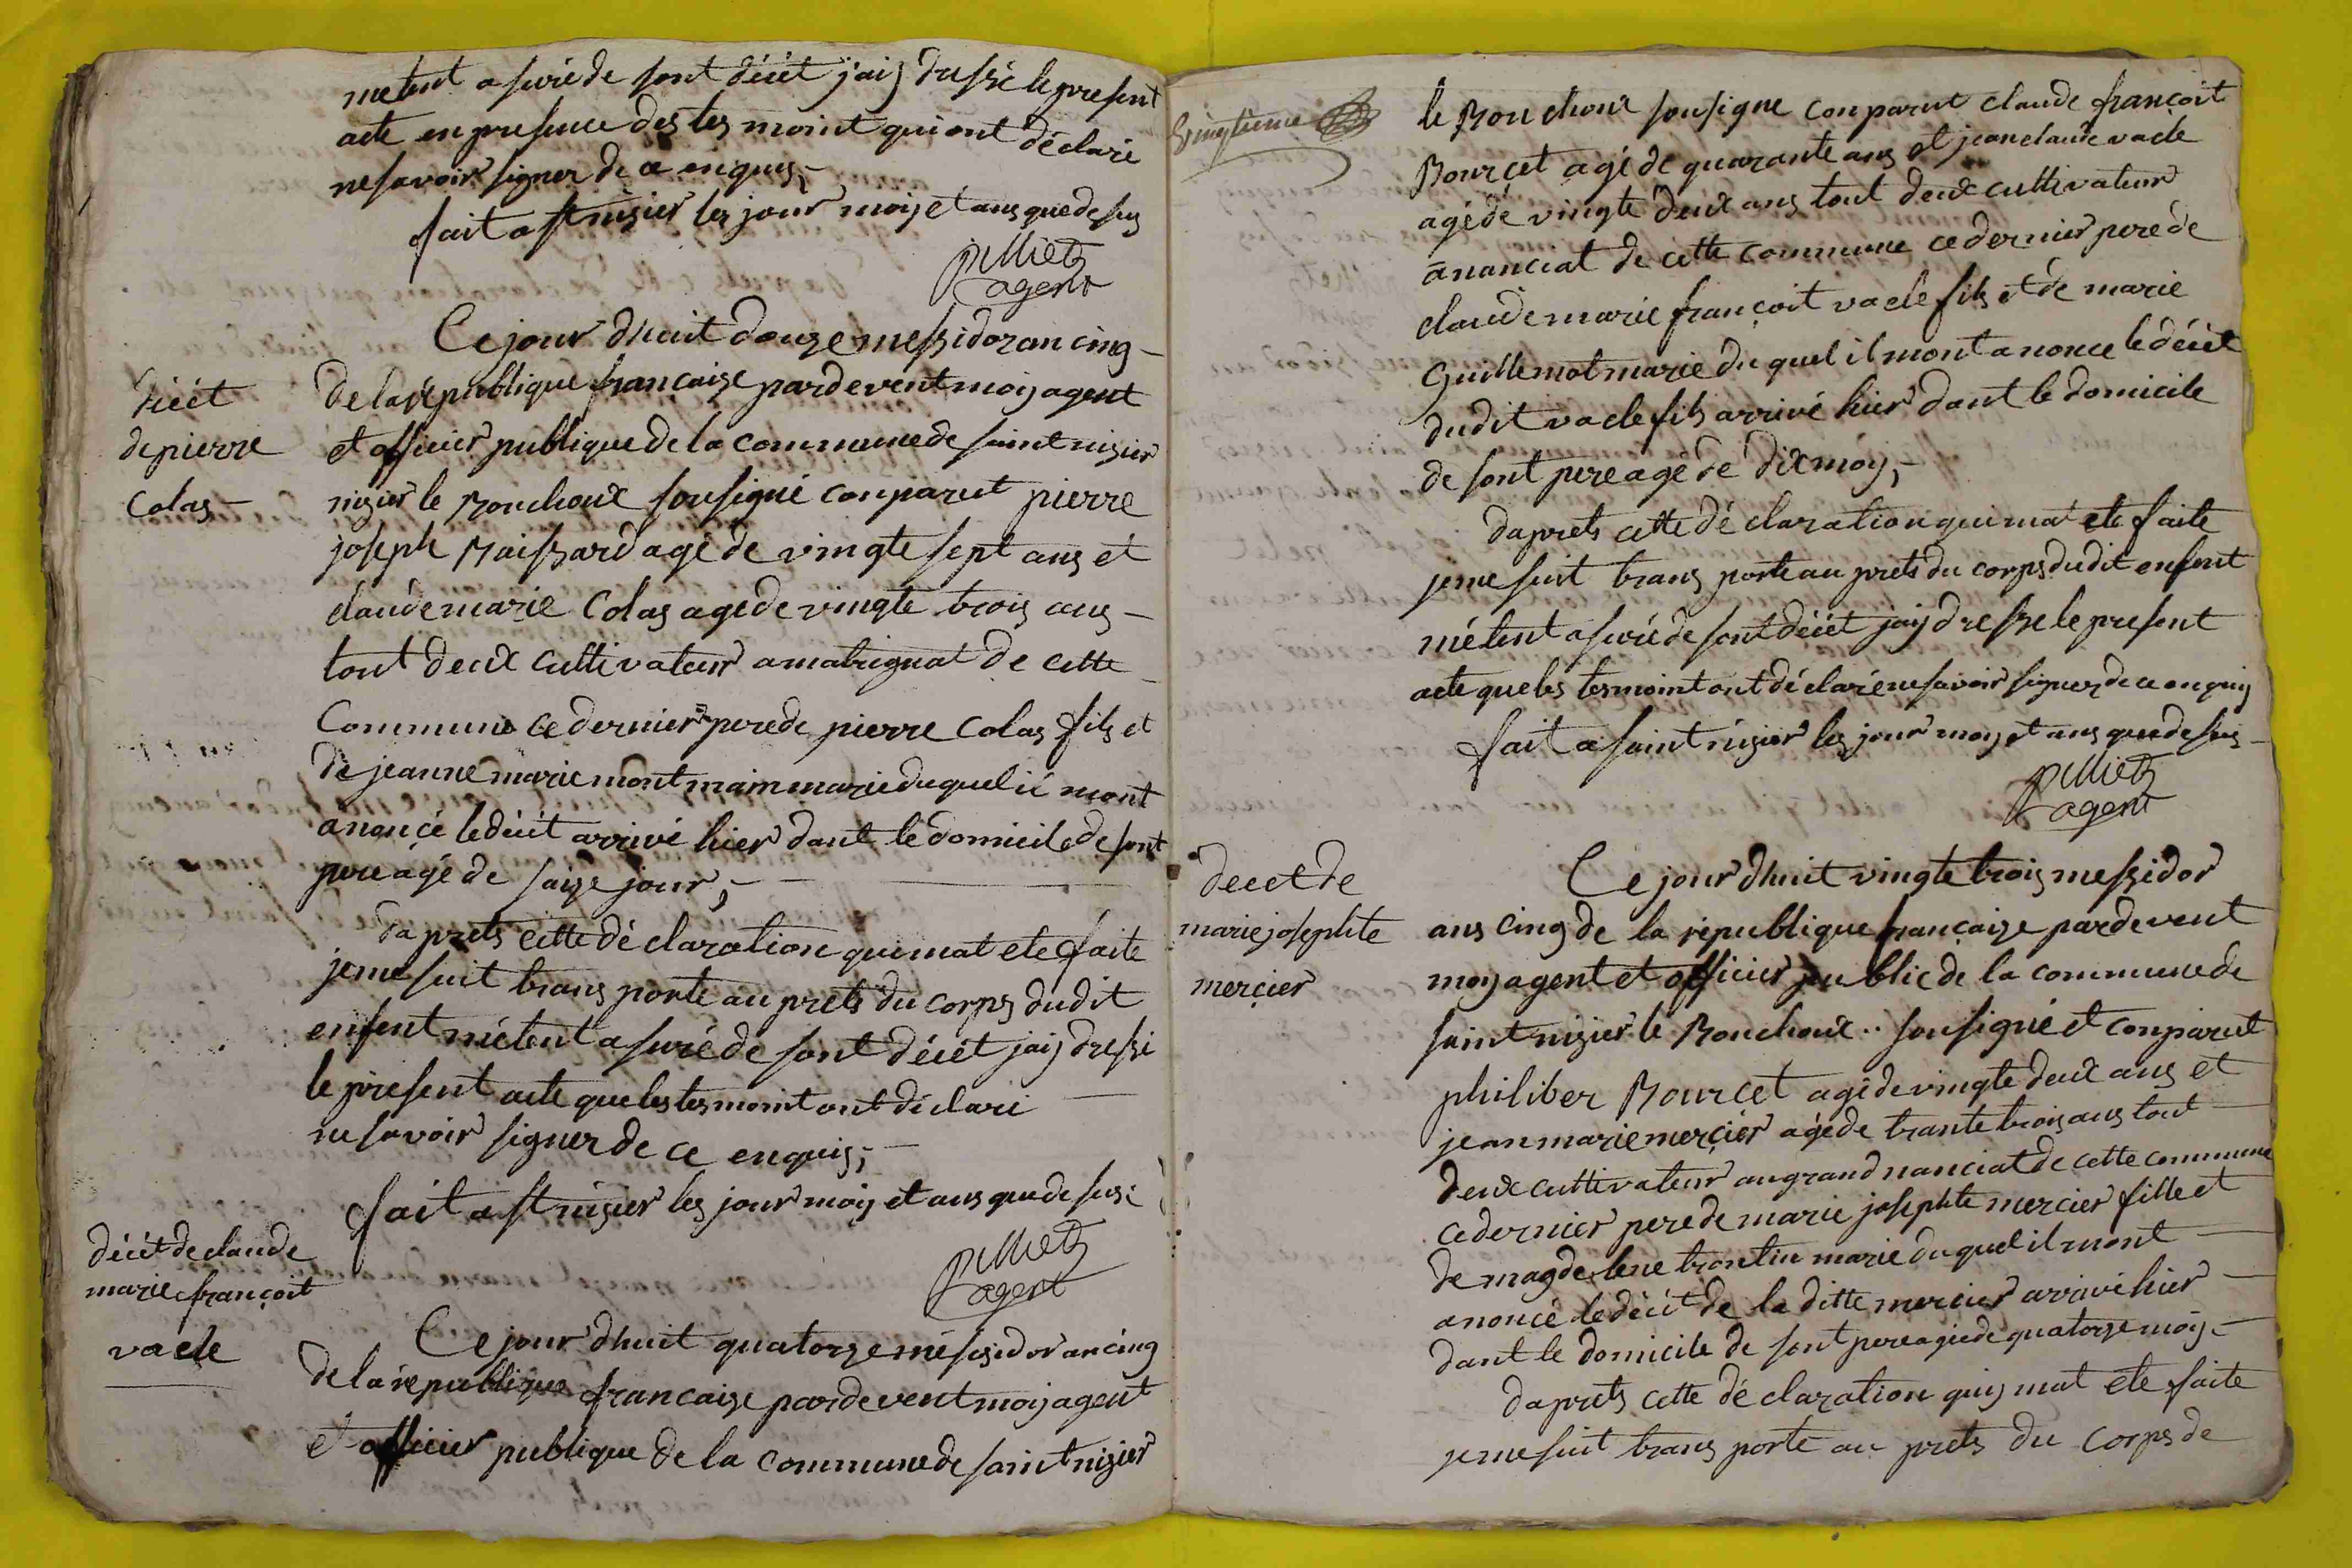 metent asuré de sont décét j'aij dressé le present
acte en presence des tesmoint qui ont déclaré
ne savoir signer de ce enquis,
fait a st nisier les jour moij et ans que desus
pilliet
agent
Ce jour d'huit douze messidor an cinq
décét
de pierre
Colas
de la république françaize pardevent moij agent
et officier publique de la commune de saint nisier
nizier le Bonchoux sousigné conparut pierre
joseph Maissard agé de vingte sept ans et
claude marie Colas agé de vingte trois ans
tout deux cultivateur a matrignat de cette
Commune ce dernier pere de pierre Colas fils et
de jeanne marie montmain marie duquel il mont
anoncé le décét arrivé hier dant le domicile de sont
pere agé de saize jour,
daprets cette déclaration qui mat ete faite
je me suit transporte au prets du corps dudit
enfent métent asuré de sont décét jaij dressé
le présent acte que les tesmoint ont déclaré
ne savoir signer de ce enquis,
fait a st nisier les jour moij et ans que desus
pilliet
agent
décét de claude
marie françoit
vacle
Ce jour d'huit quatorze messidor an cinq
de la république françaize pardevent moij agent
et officier publique de la commune de saint nizier
vingtieme
le Bonchoux sousigne conparut claude françoit
Bourcet agé de quarante ans et jean claude vacle
agé de vingte deux ans tout deux cultivateur
a nanciat de cette commune ce dernier pere de
claude marie françoit vacle fils et de marie
Guillemot marie du quel il mont anonce le décét
dudit vacle fils arrivé hier dant le domicile
de sont pere agé de dix moij,
daprets cette déclaration qui mat ete faite
je me suit transporte au prets du corps dudit enfent
métent asuré de sont décét jaij dresse le present
acte que les tesmoint ont déclaré ne savoir signer de ce enquis
fait a saint nisier les jour moij et ans que desus
pilliet
agent
decet de
marie josephte
mercier
Ce jour d'huit vingte trois messidor
ans cinq de la république françaize pardevent
moij agent et officier public de la commune de
saint nizier le Bonchoux .. sousigné et conparut
philiber Bourcet agé de vingte deux ans et
jean marie mercier agé de trante trois ans tout
deux cultivateur au grand nanciat de cette commune
ce dernier pere de marie josephte mercier fille et
de magdelene trontin marie du quel il mont
anoncé le décét de la ditte mercier arrivé hier
dant le domicile de sont pere agie de quatorze moij
daprets cette déclaration quij mat ete faite
je me suit transporte au prets du corps de